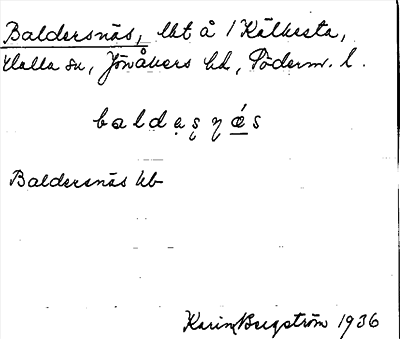 Baldersnäs, lht å / Kälkesta,
Halla sn, Jönåkers hd, Söderm. l.
baldąşŋǽs
Baldersnäs hb
Karin Bergström 1936